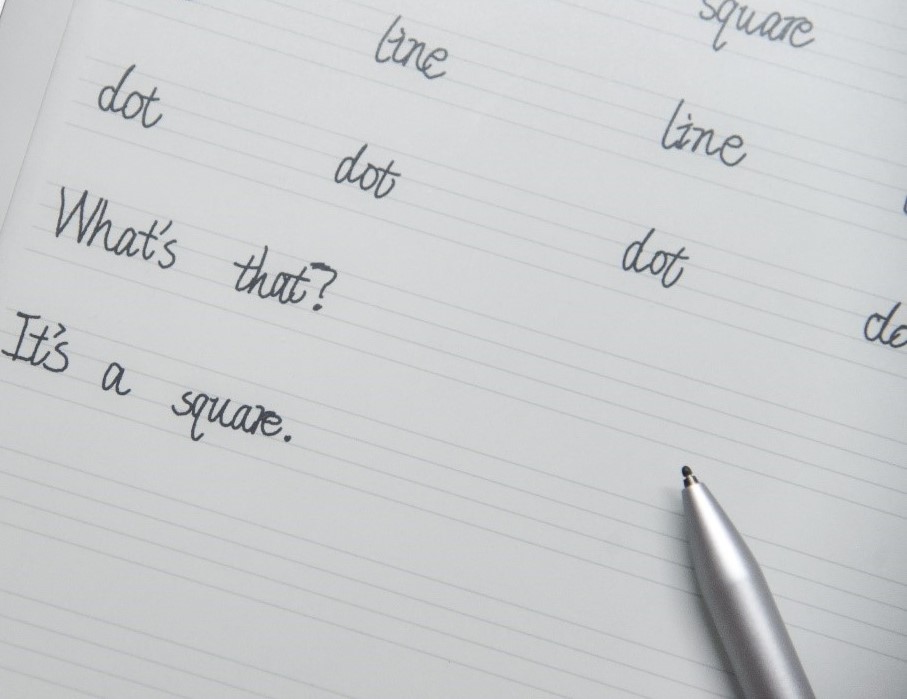 square
line line
dot dot dot
What's that?
It's a square.